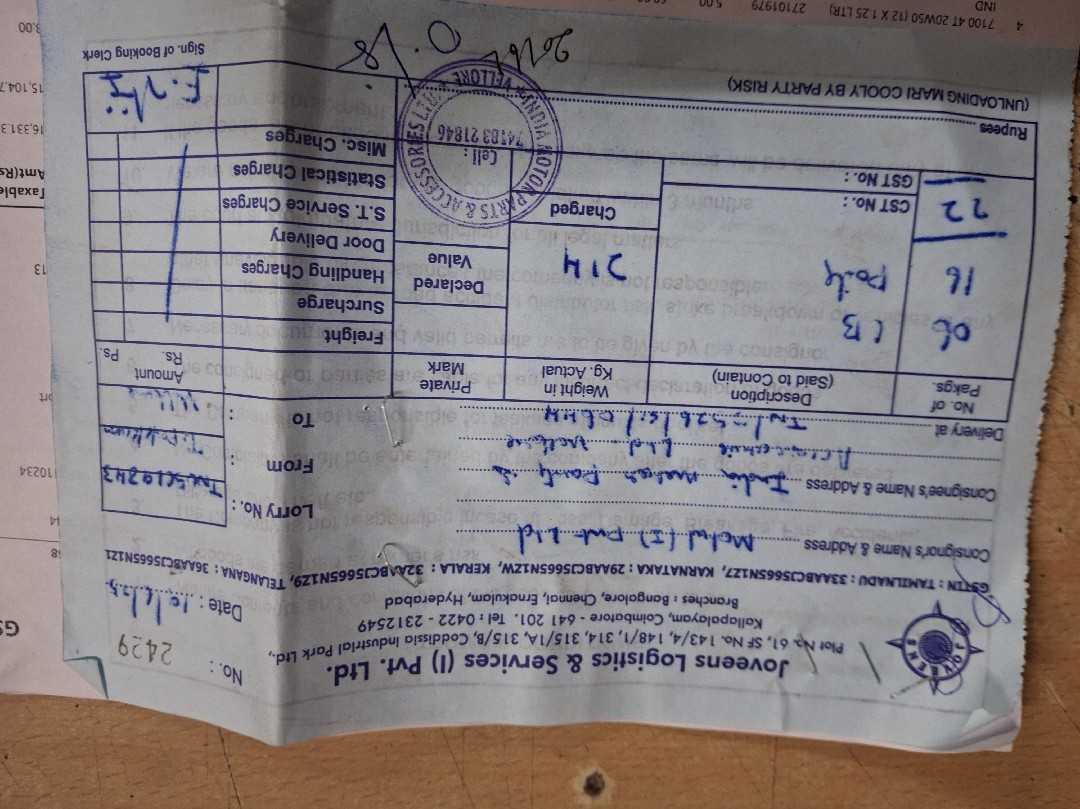 JOVEENS
Joveens Logistics & Services (I) Pvt. Ltd.
Plot No. 61, SF No. 143/4, 148/1, 314, 315/1A, 315/B, Coddissia Industrial Park Ltd.,
Kallapalayam, Coimbatore - 641 201. Tel : 0422 - 2312549
Branches : Bangalore, Chennai, Ernakulam, Hyderabad
GSTIN : TAMILNADU : 33AABCJ5665N1Z7, KARNATAKA : 29AABCJ5665N1ZW, KERALA : 32AABCJ5665N1Z9, TELANGANA : 36AABCJ5665N1Z1
No. : 2429
Date : 10/6/25
Consignor's Name & Address Motul (I) Pvt Ltd
Consignee's Name & Address India Motor Parts &
Accessories Ltd Vellore
Delivery at
Lorry No. :
From :
To : Vellore
No. of Pakgs.
Description (Said to Contain)
Weight in Kg. Actual
Private Mark
Amount
Rs. Ps.
06 CB
16 Pail
22
214
Charged
Declared Value
CST No. :
GST No. :
Freight
Surcharge
Handling Charges
Door Delivery
S.T. Service Charges
Statistical Charges
Misc. Charges
Rupees
(UNLOADING MARI COOLY BY PARTY RISK)
Sign. of Booking Clerk
INDIA MOTOR PARTS & ACCESSORIES LTD. VELLORE
Cell :
74183 21846
4 7100 4T 20W50 (12 X 1.25 LTR) 27101979 5.00
IND
3.00
15,104.7
16,331.3
Amt(Rs)
Taxable
13
110234
GS